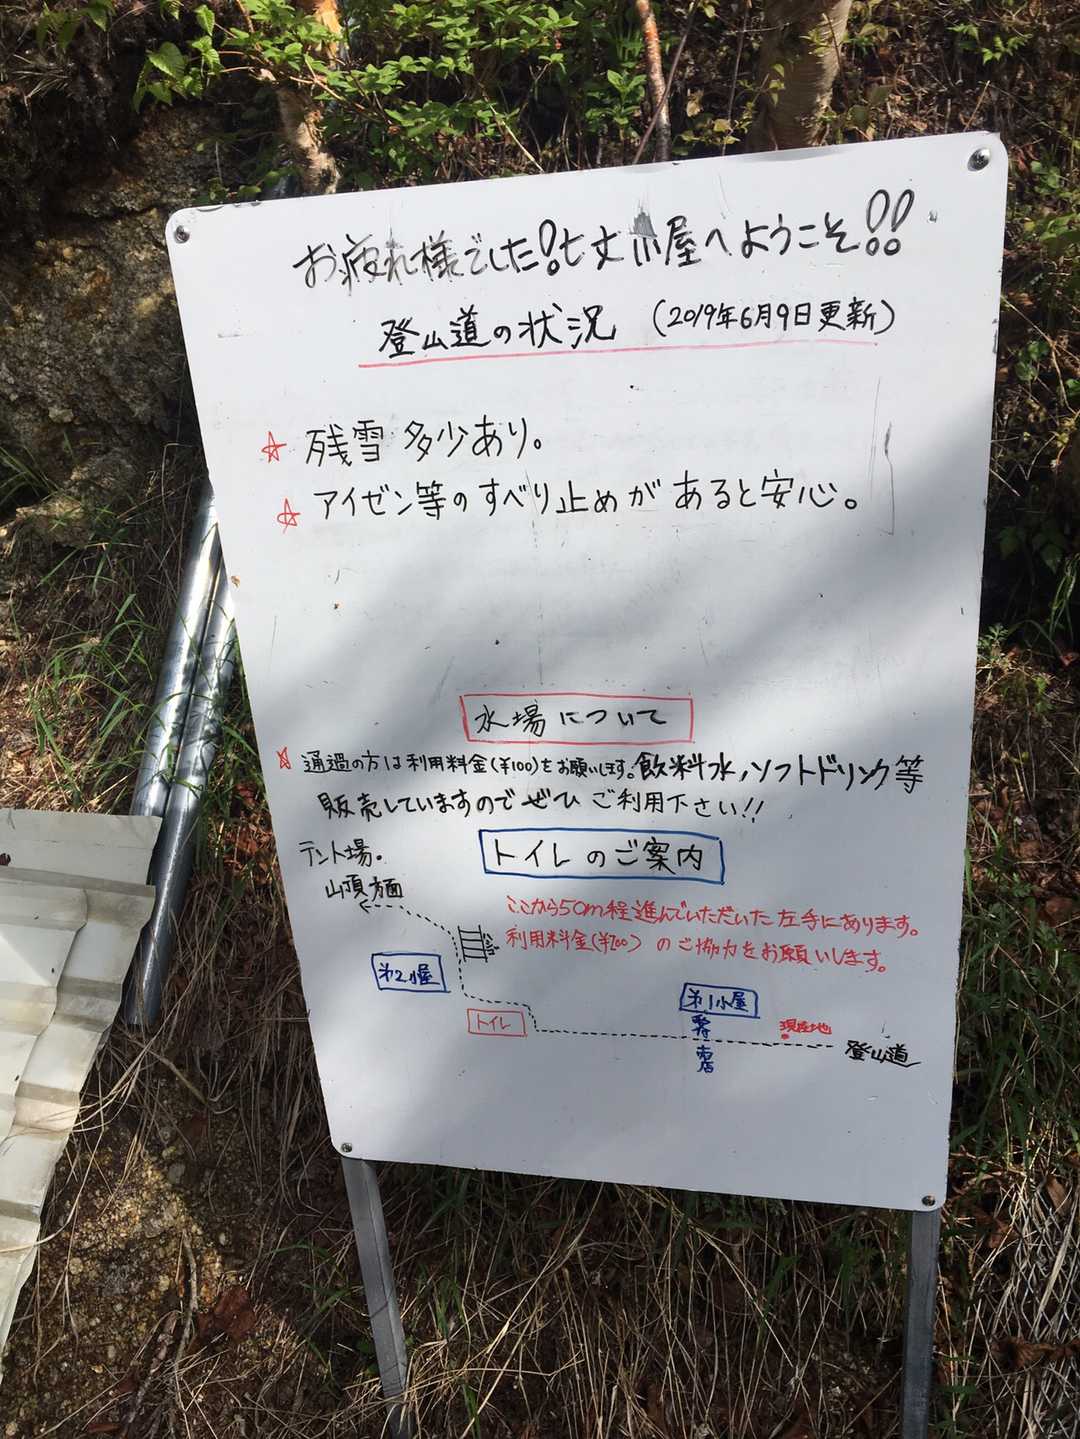 お疲れ様でした!七丈小屋へようこそ!!
登山道の状況 (2019年6月9日更新)
☆ 残雪 多少あり。
☆ アイゼン等のすべり止めがあると安心。
水場について
☆ 通過の方は利用料金(¥100)をお願いします。飲料水、ソフトドリンク等
販売していますのでぜひ ご利用下さい!!
トイレのご案内
テント場。
山頂方面
ここから50m程進んでいただいた左手にあります。
利用料金(¥200) のご協力をお願いします。
第2小屋
ハシゴ
トイレ
第1小屋
受付
売店
現在地
登山道